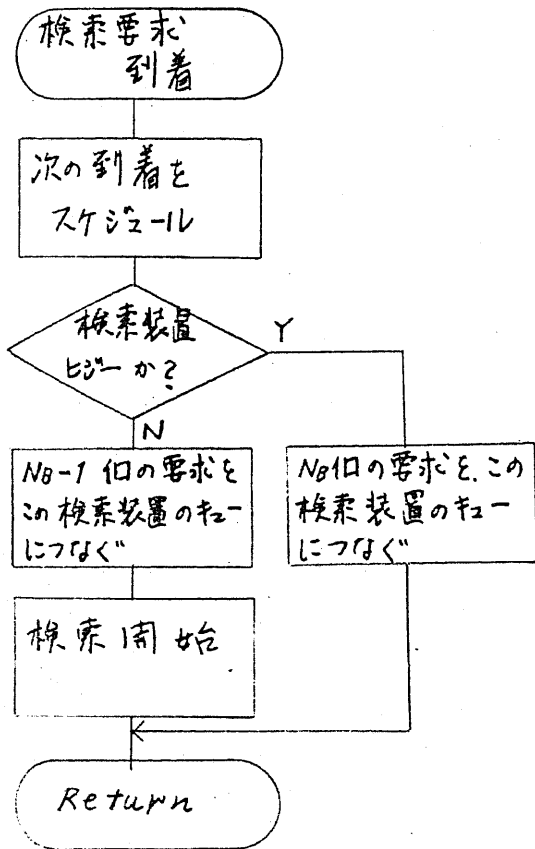 検索要求
到着
次の到着を
スケジュール
検索装置
ビジーか?
Y
N
NB-1 個の要求を
この検索装置のキュー
につなぐ
NB個の要求を、この
検索装置のキュー
につなぐ
検索開始
Return